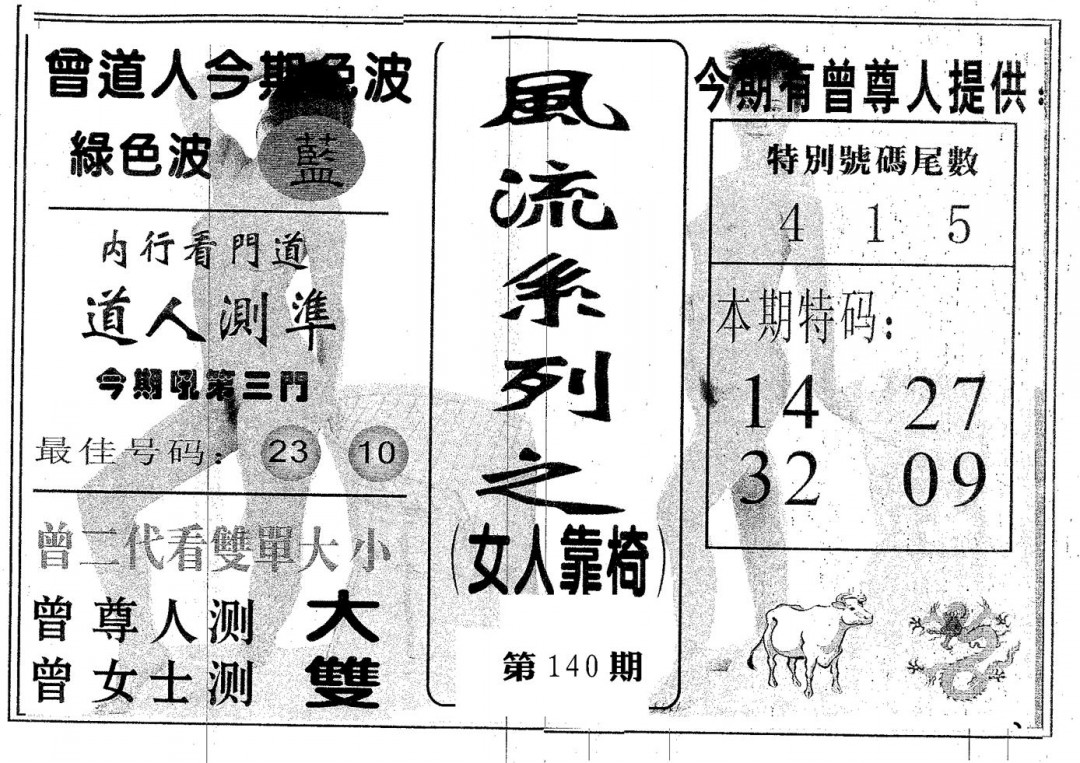 曾道人今期色波
綠色波 藍
内行看門道
道人測準
今期吼第三門
最佳号码：23 10
曾二代看雙單大小
曾尊人测 大
曾女士测 雙
風流系列之
（女人靠椅）
第140期
今期有曾尊人提供：
特別號碼尾數
4 1 5
本期特码：
14 27
32 09